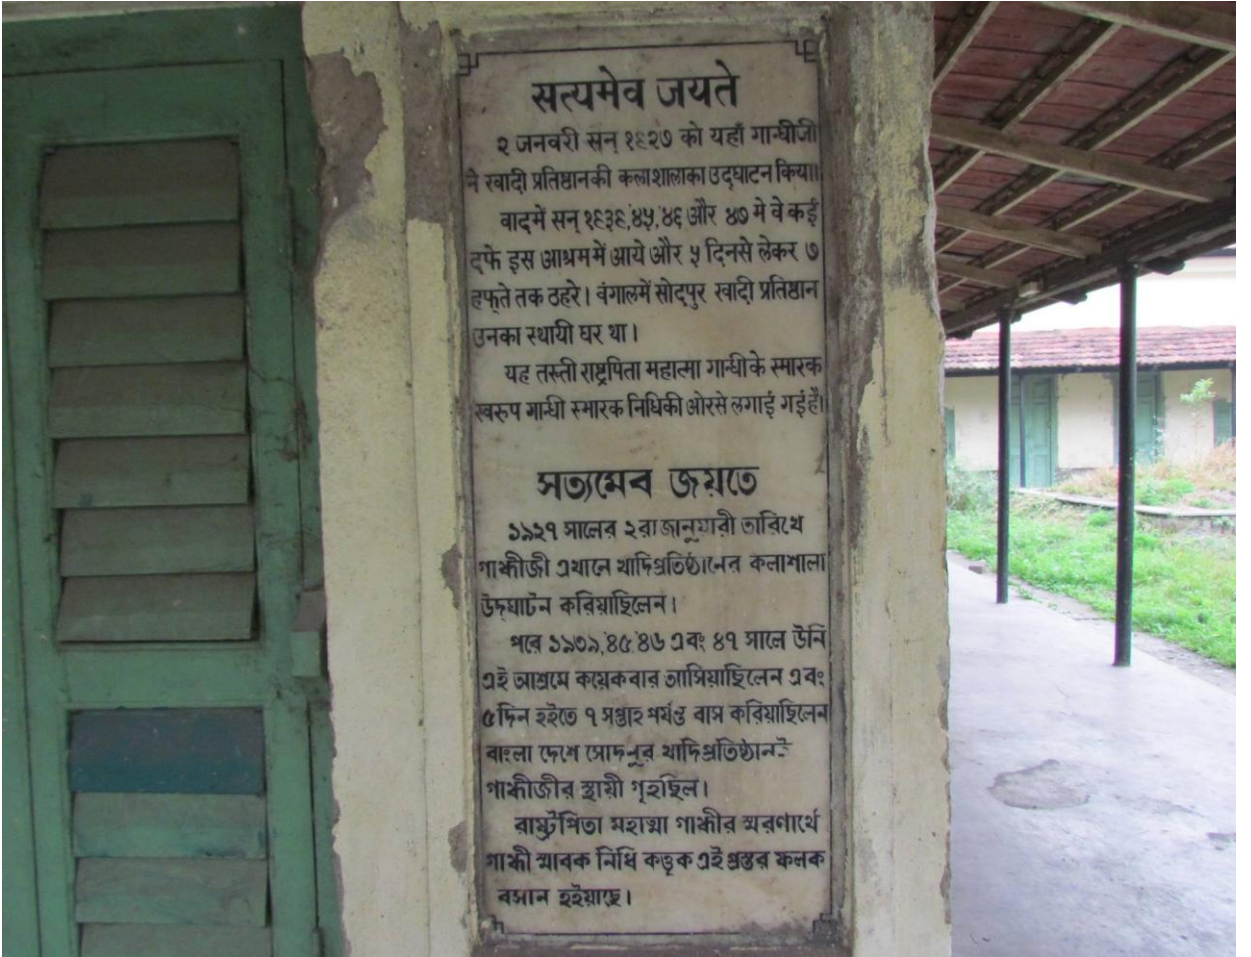 सत्यमेव जयते
२ जनवरी सन् १९२७ को यहाँ गान्धीजी
ने खादी प्रतिष्ठानकी कलाशालाका उद्घाटन किया।
वादमें सन् १९३९,'४५,'४६ और ४७ मे वे कई
दफे इस आश्रममें आये और ५ दिनसे लेकर ७
हफ्ते तक ठहरे। वंगालमें सोदपुर खादी प्रतिष्ठान
उनका स्थायी घर था।
यह तस्ती राष्ट्रपिता महात्मा गान्धीके स्मारक
स्वरुप गान्धी स्मारक निधिकी ओरसे लगाई गई है।
সত্যমেব জয়তে
১৯২৭ সালের ২রা জানুয়ারী তারিখে
গান্ধীজী এখানে খাদিপ্রতিষ্ঠানের কলাশালা
উদ্ঘাটন করিয়াছিলেন।
পরে ১৯৩৯,'৪৫'৪৬ এবং ৪৭ সালে উনি
এই আশ্রমে কয়েকবার আসিয়াছিলেন এবং
৫দিন হইতে ৭ সপ্তাহ পর্যন্ত বাস করিয়াছিলেন
বাংলা দেশে সোদপুর খাদিপ্রতিষ্ঠানই
গান্ধীজীর স্থায়ী গৃহছিল।
রাষ্ট্রপিতা মহাত্মা গান্ধীর স্মরণার্থে
গান্ধী স্মারক নিধি কর্তৃক এই প্রস্তর ফলক
বসান হইয়াছে।